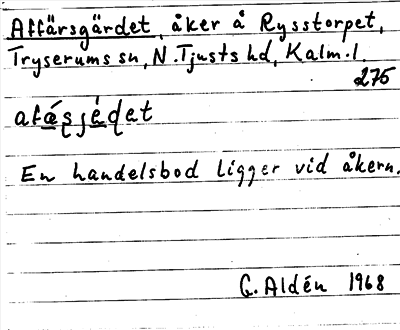 Affärsgärdet, åker å Rysstorpet,
Tryserums sn, N.Tjusts hd, Kalm.l.
275
En handelsbod ligger vid åkern.
G. Aldén 1968